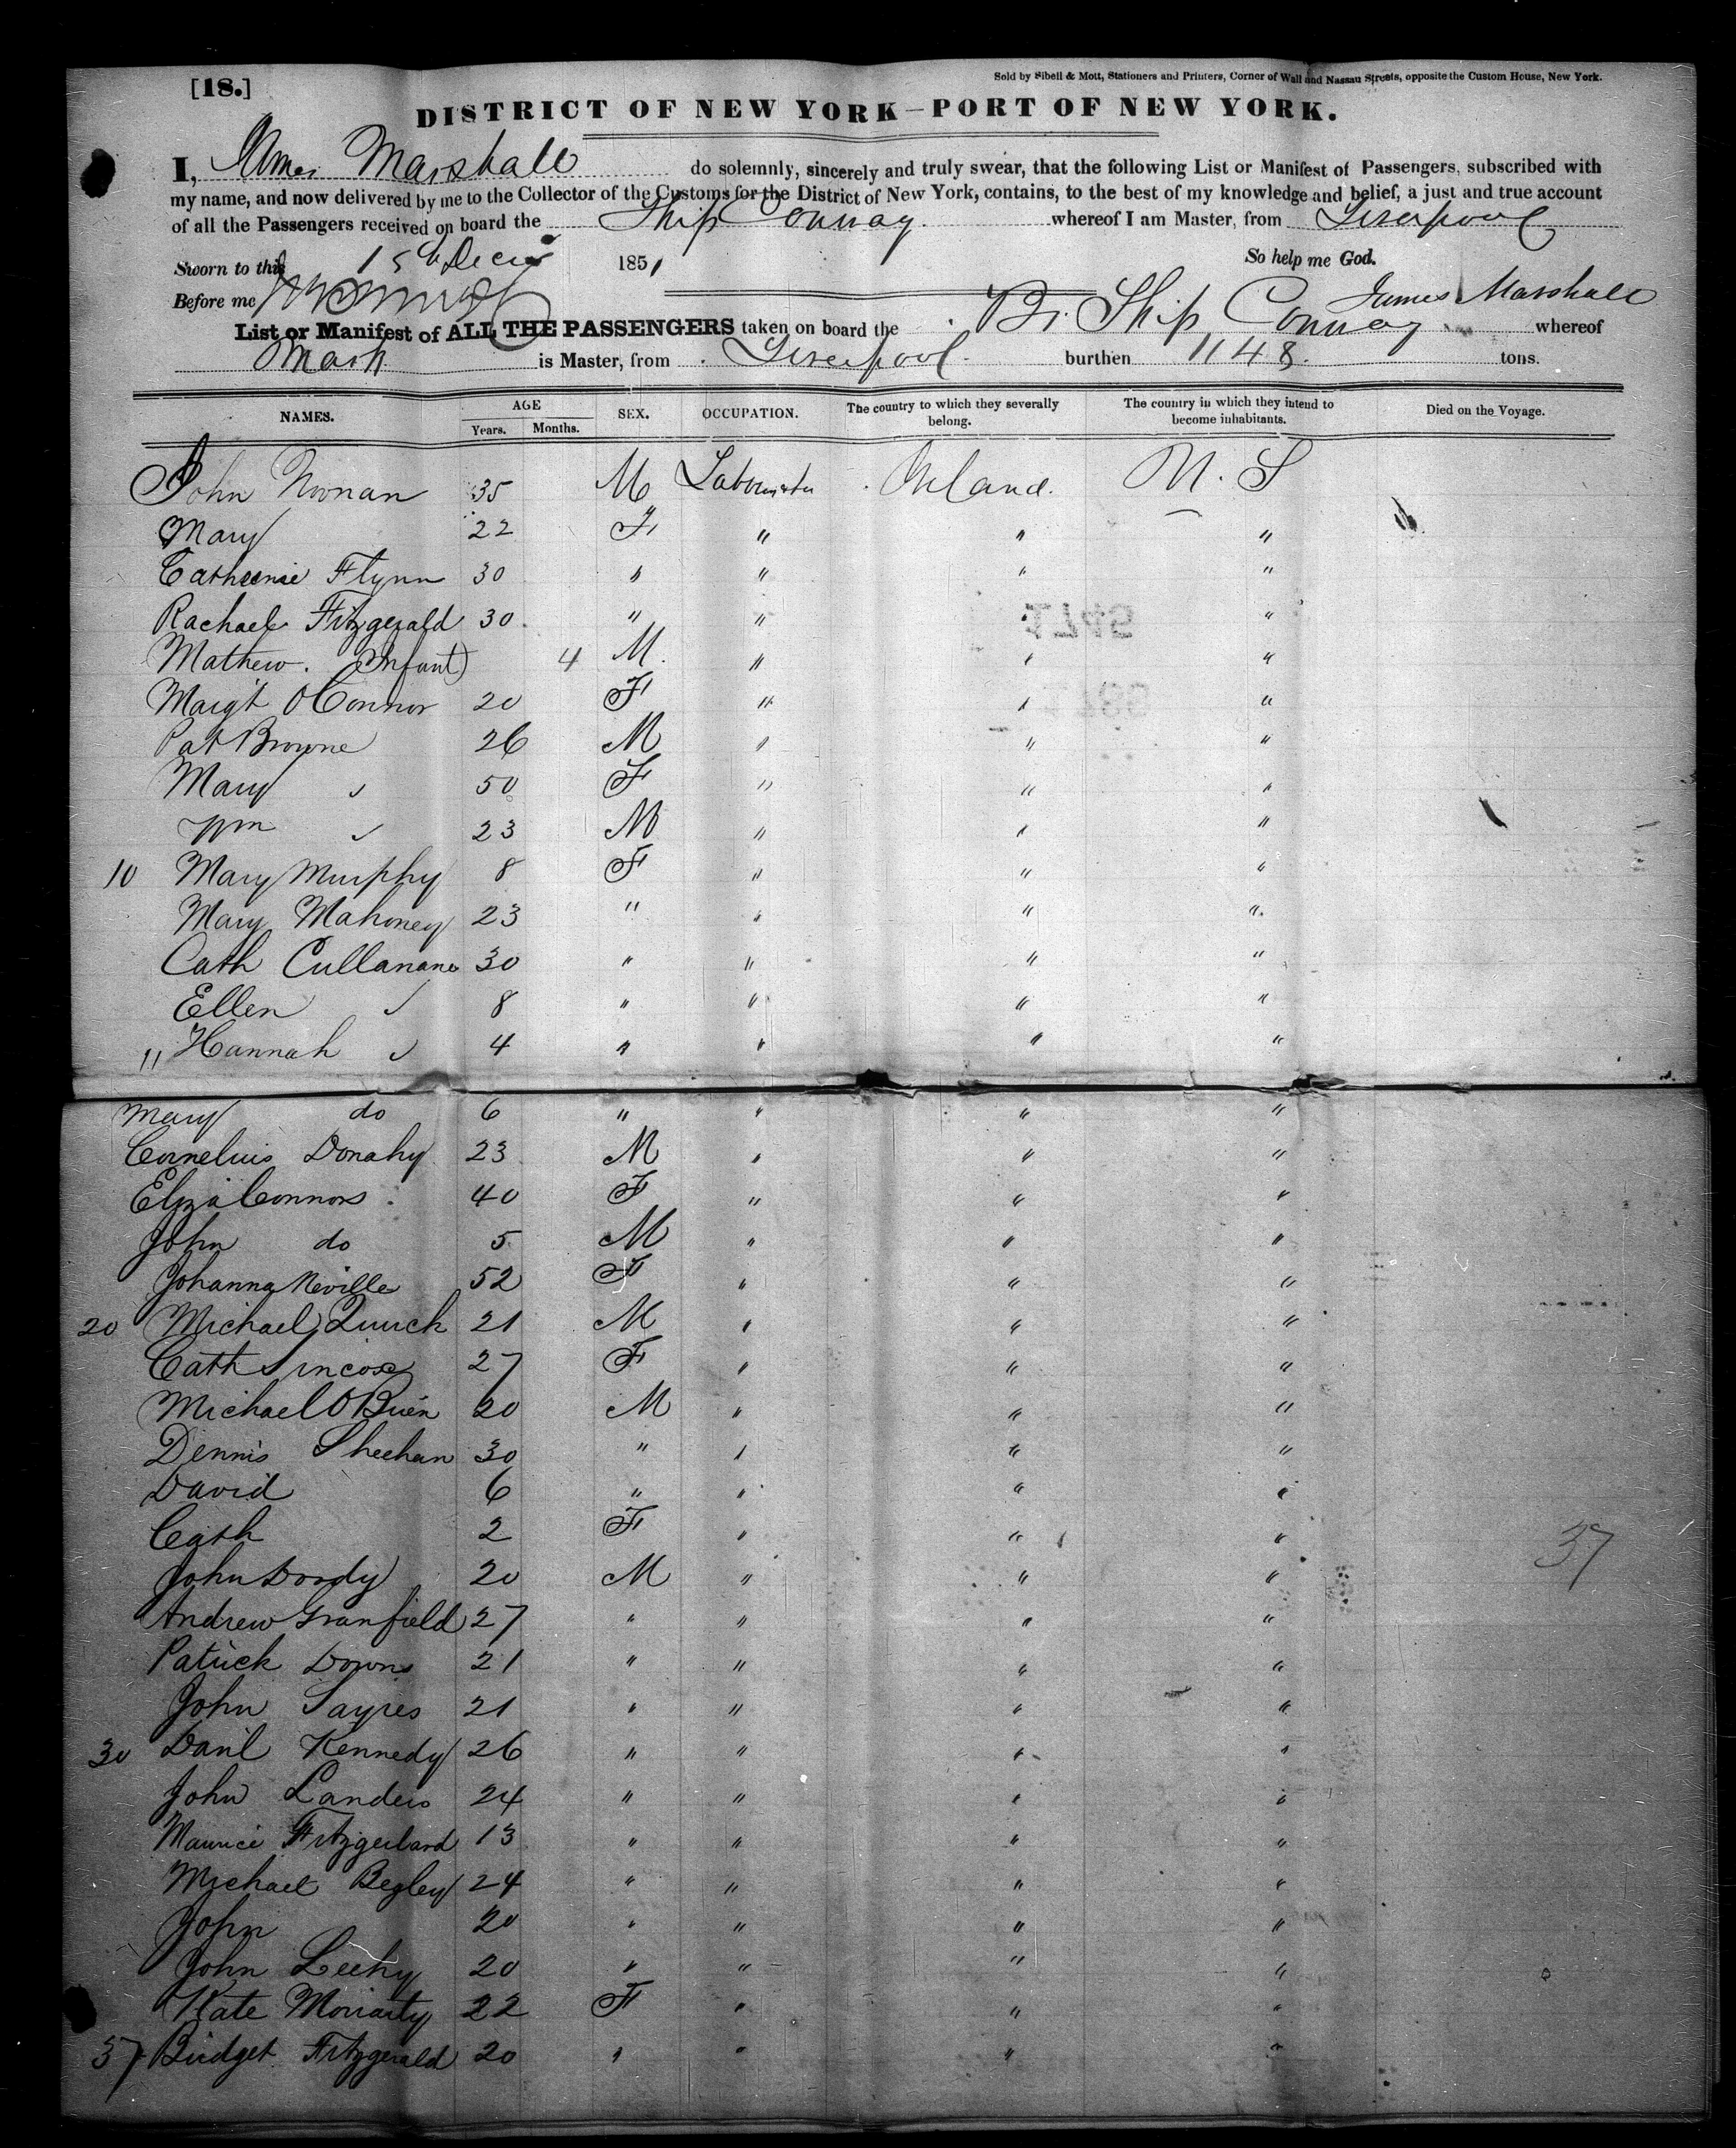 [18.]
Sold by Sibell & Mott, Stationers and Printers, Corner of Wall and Nassau Streets, opposite the Custom House, New York.
DISTRICT OF NEW YORK—PORT OF NEW YORK.
I, James Marshall do solemnly, sincerely and truly swear, that the following List or Manifest of Passengers, subscribed with
my name, and now delivered by me to the Collector of the Customs for the District of New York, contains, to the best of my knowledge and belief, a just and true account
of all the Passengers received on board the Ship Conway whereof I am Master, from Liverpool
Sworn to this 15th Decr 1851 So help me God.
Before me James Marshall
List or Manifest of ALL THE PASSENGERS taken on board the Br. Ship Conway whereof
is Master, from Liverpool burthen 1148 tons.
NAMES. AGE Years. Months. SEX. OCCUPATION. The country to which they severally belong. The country in which they intend to become inhabitants. Died on the Voyage.
John Noonan 35 M Ireland. U. S
Mary 22 F " " "
Catherine Flynn 30 " " " "
Rachael Fitzgerald 30 " " " "
Mathew. (Infant) 4 M " " "
Margt O'Connor 20 F " " "
Pat Browne 26 M " " "
Mary " 50 F " " "
Wm " 23 M " " "
10 Mary Murphy 8 F " " "
Mary Mahoney 23 " " " "
Cath Cullanane 30 " " " "
Ellen " 8 " " " "
" Hannah " 4 " " " "
Mary do 6 " " " "
Cornelius Donahy 23 M " " "
Eliza Connors 40 F " " "
John do 5 M " " "
Johanna Neville 52 F " " "
20 Michael Quirck 21 M " " "
Cath 27 F " " "
Michael O'Brien 20 M " " "
Dennis Sheehan 30 " " " "
David 6 " " " "
Cath 2 F " " "
John Doody 20 M " " "
37
Andrew Granfield 27 " " " "
Patrick Downs 21 " " " "
John Sayres 21 " " " "
30 Danl Kennedy 26 " " " "
John Landers 24 " " " "
Maurice Fitzgerlard 13 " " " "
Michael Begley 24 " " " "
John 20 " " " "
John Leehy 20 " " " "
Kate Moriarty 22 F " " "
37 Bridget Fitzgerald 20 " " " "